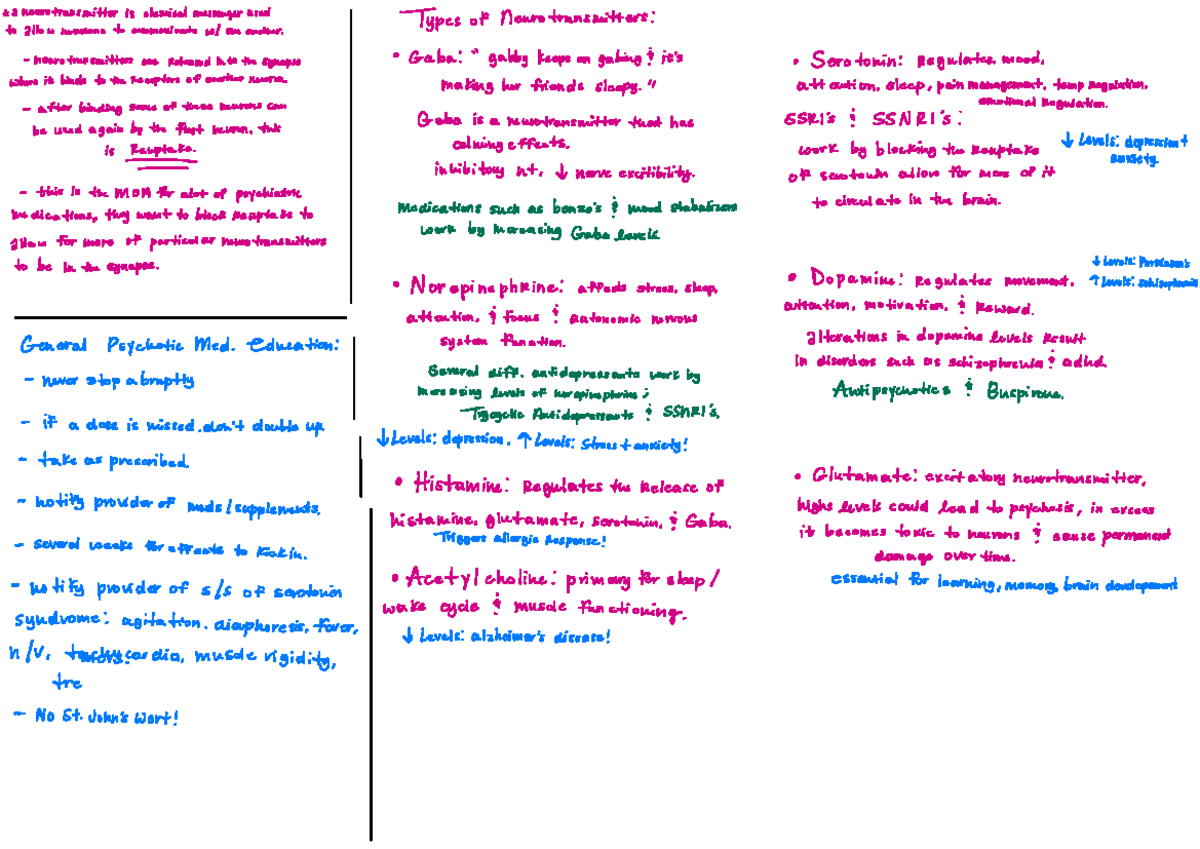 a neurotransmitter is chemical messenger used
to allow neurons to communicate w/ one another.
- neurotransmitters are released into the synapse
where is binds to the receptors of another neuron.
- after binding some of these neurons can
be used again by the first neuron, this
is Reuptake.
- this is the MOA for alot of psychiatric
medications, they want to block reuptake to
allow for more of particular neurotransmitters
to be in the synapse.
General Psychotic Med. Education:
- never stop abruptly
- if a dose is missed.don't double up
- take as prescribed.
- notify provider of meds/supplements.
- several weeks for effects to kick in.
- notify provider of s/s of serotonin
syndrome: agitation. diaphoresis, fever,
n/v, tachycardia, muscle rigidity,
tre
- No St. John's Wort!
Types of Neurotransmitters:
• Gaba: " gabby keeps on gabing & it's
making her friends sleepy. "
Gaba is a neurotransmitter that has
calming effects.
inhibitory nt, ↓ nerve excitibility.
Medications such as benzo's & mood stabalizers
work by increasing Gaba levels
• Norepinephrine: affects stress, sleep,
attention, & focus & autonomic nervous
system function.
Several diff. antidepressants work by
increasing levels of norepinephrine;
Trycyclic Antidepressants & SSNRI's.
↓ Levels: depression. ↑ Levels: Stress + anxiety!
• Histamine: Regulates the release of
histamine, glutamate, serotonin, & Gaba.
Triggers allergic Response!
• Acetylcholine: primary for sleep/
wake cycle & muscle functioning.
↓ Levels: alzheimer's disease!
• Serotonin: Regulates mood,
attention, sleep, pain management, temp regulation,
emotional regulation.
SSRI's & SSNRI's:
work by blocking the reuptake
of serotonin allow for more of it
to circulate in the brain.
↓ Levels: depression +
anxiety
• Dopamine: Regulates movement.
attention, motivation, & Reward.
↓ Levels: Parkinson's
↑ Levels: schizophrenia
alterations in dopamine levels result
in disorders such as schizophrenia & adhd.
Antipsychotics & Buspirone.
• Glutamate: excitatory neurotransmitter,
highs levels could lead to psychosis, in excess
it becomes toxic to neurons & cause permanent
damage over time.
essential for learning, memory, brain development